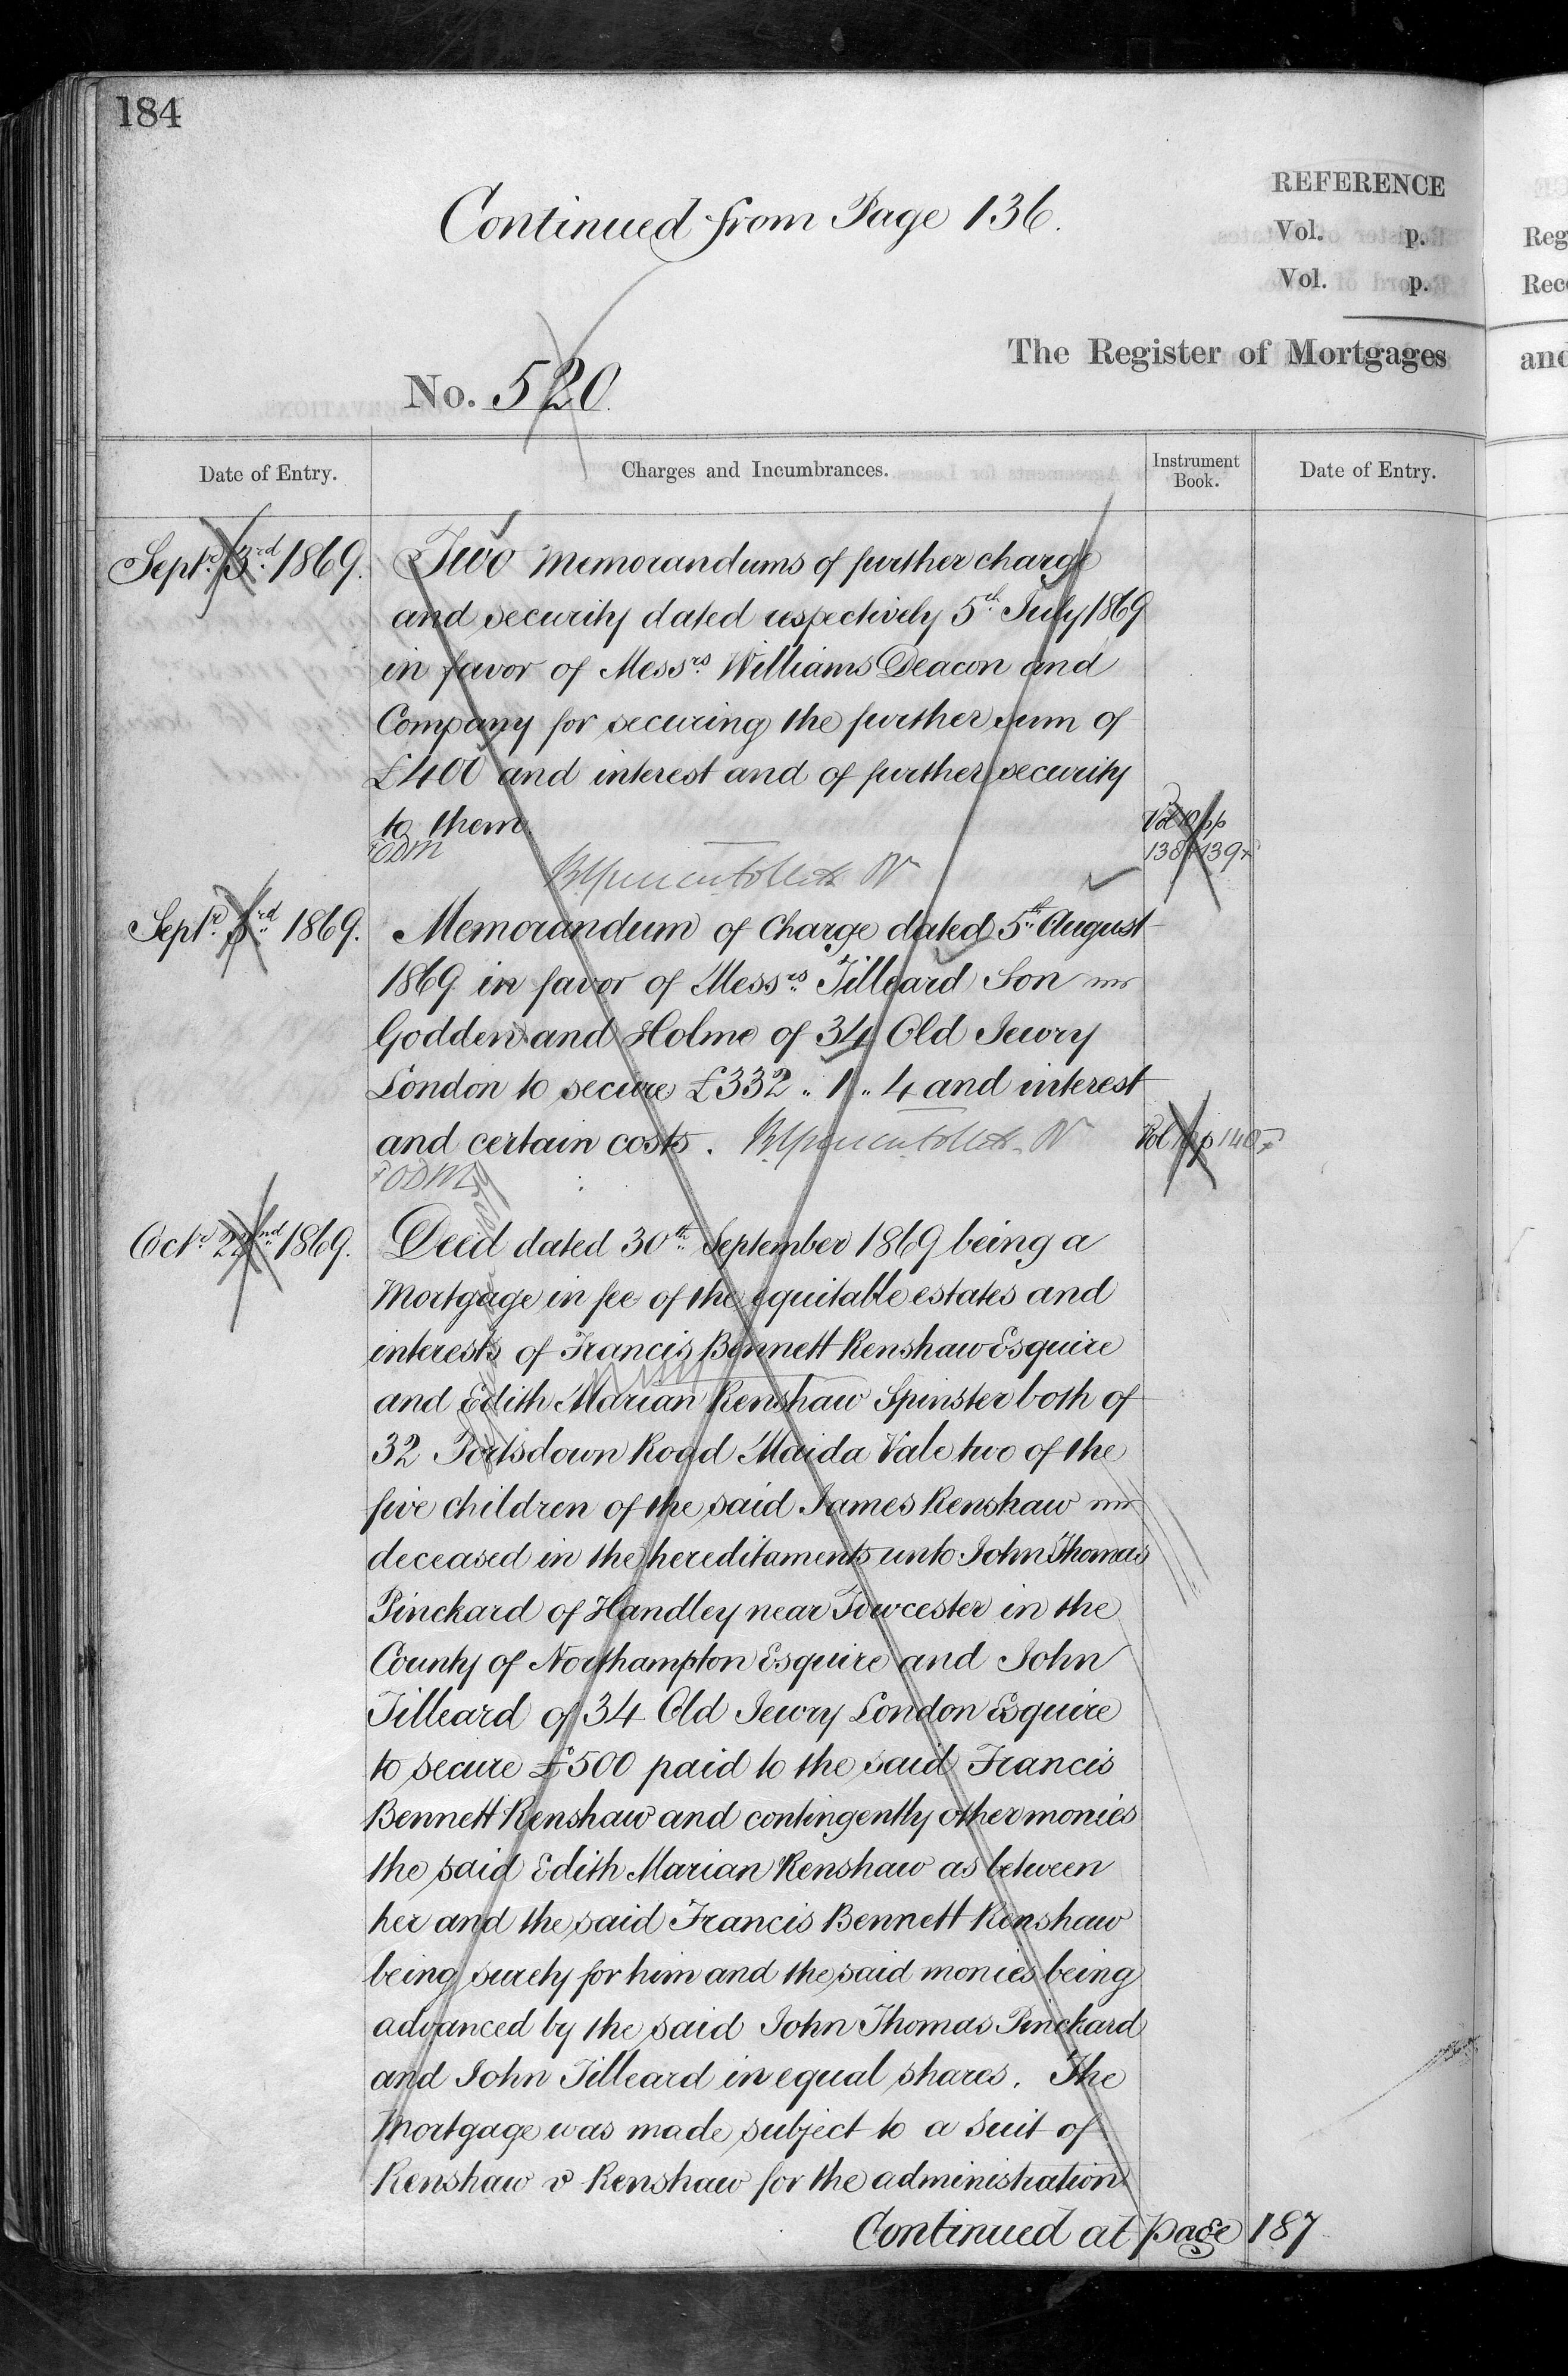 184
Continued from Page 136.
REFERENCE
Vol. p.
Vol. p.
The Register of Mortgages
No. 520.
Date of Entry.
Charges and Incumbrances.
Instrument Book.
Date of Entry.
Septr. 3rd 1869.
Two Memorandums of further charge
and security dated respectively 5th July 1869
in favor of Messrs Williams Deacon and
Company for securing the further sum of
£400 and interest and of further security
to them.
Vol 10 pp
138 + 139
Septr. 3rd 1869.
Memorandum of Charge dated 5th August
1869 in favor of Messrs Tilleard Son
Godden and Holme of 34 Old Jewry
London to secure £332 .. 1 .. 4 and interest
and certain costs.
Vol 10 p 140
Octr. 22nd 1869.
Deed dated 30th September 1869 being a
Mortgage in fee of the equitable estates and
interests of Francis Bennett Renshaw Esquire
and Edith Marian Renshaw Spinster both of
32 Portsdown Road Maida Vale two of the
five children of the said James Renshaw
deceased in the hereditaments unto John Thomas
Pinckard of Handley near Towcester in the
County of Northampton Esquire and John
Tilleard of 34 Old Jewry London Esquire
to secure £500 paid to the said Francis
Bennett Renshaw and contingently other monies
the said Edith Marian Renshaw as between
her and the said Francis Bennett Renshaw
being surety for him and the said monies being
advanced by the said John Thomas Pinckard
and John Tilleard in equal shares. The
Mortgage was made subject to a Suit of
Renshaw v Renshaw for the administration
Continued at page 187